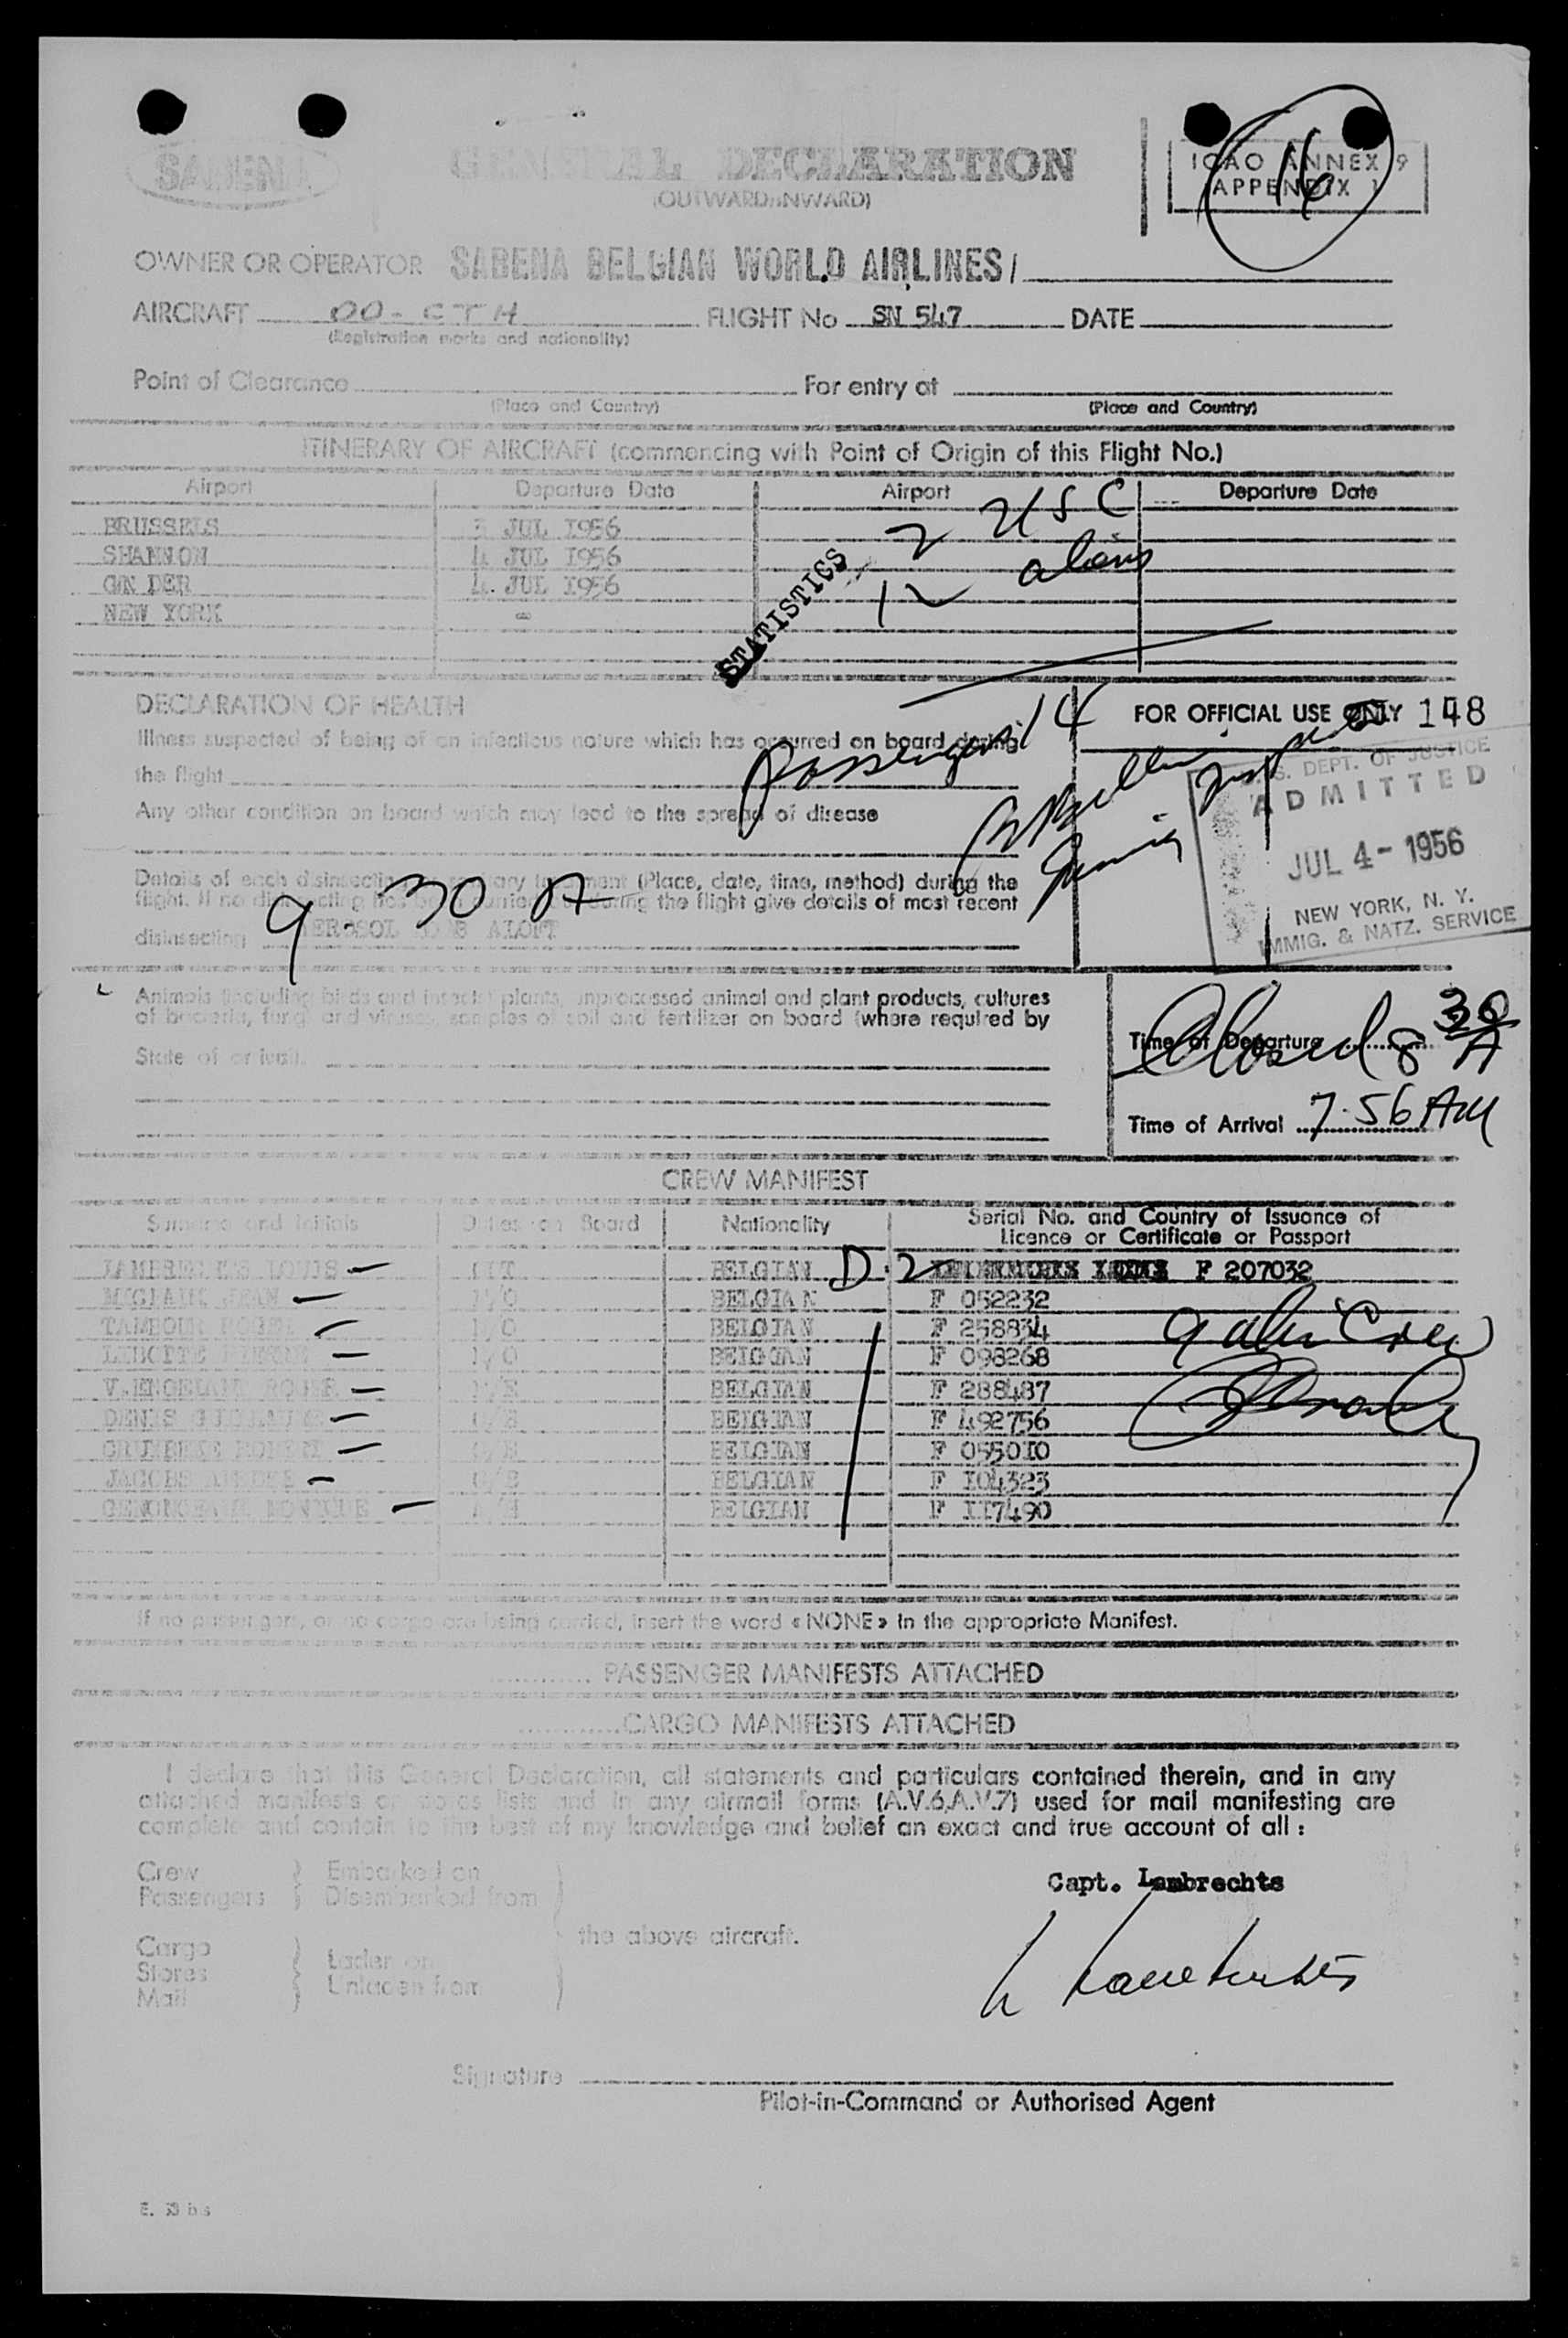 SABENA
GENERAL DECLARATION
(OUTWARD/INWARD)
ICAO ANNEX 9
APPENDIX 1
16
OWNER OR OPERATOR SABENA BELGIAN WORLD AIRLINES/
AIRCRAFT OO-CTH FLIGHT No SN 547 DATE
(Registration marks and nationality)
Point of Clearance For entry at
(Place and Country) (Place and Country)
ITINERARY OF AIRCRAFT (commencing with Point of Origin of this Flight No.)
Airport Departure Date Airport Departure Date
BRUSSELS 3 JUL 1956
SHANNON 4 JUL 1956
GN DER 4. JUL 1956
NEW YORK -
STATISTICS
2 USC
12 aliens
DECLARATION OF HEALTH
FOR OFFICIAL USE ONLY 148
Illness suspected of being of an infectious nature which has occurred on board during
the flight
Passengers 14
Any other condition on board which may lead to the spread of disease
U.S. DEPT. OF JUSTICE
ADMITTED
JUL 4- 1956
NEW YORK, N. Y.
IMMIG. & NATZ. SERVICE
Details of each disinsecting or sanitary treatment (Place, date, time, method) during the
flight. If no disinsecting has been carried out during the flight give details of most recent
disinsecting AEROSOL ALOFT
9-30 A
Animals (including birds and insects) plants, unprocessed animal and plant products, cultures
of bacteria, fungi and viruses, samples of soil and fertilizer on board (where required by
State of arrival).
Time of Departure
Closed 8 30 A
Time of Arrival 7.56 AM
CREW MANIFEST
Surname and Initials Duties on Board Nationality Serial No. and Country of Issuance of
Licence or Certificate or Passport
LAMBRECHTS LOUIS BELGIAN D.2 F 207032
BELGIAN F 052232
TAMBOUR ROGER BELGIAN F 258834
BELGIAN F 098268
ROGER BELGIAN F 288487
DENIS BELGIAN F 492756
BELGIAN F 055010
JACOBS BELGIAN F 104323
BELGIAN F 117490
9 alien Crew
If no passengers, or no cargo are being carried, insert the word « NONE » in the appropriate Manifest.
PASSENGER MANIFESTS ATTACHED
CARGO MANIFESTS ATTACHED
I declare that this General Declaration, all statements and particulars contained therein, and in any
attached manifests or stores lists and in any airmail forms (A.V.6,A.V.7) used for mail manifesting are
complete and contain to the best of my knowledge and belief an exact and true account of all :
Crew Embarked on
Passengers Disembarked from
the above aircraft.
Cargo
Stores Laden on
Mail Unladen from
Capt. Lambrechts
Signature
Pilot-in-Command or Authorised Agent
E. 53 bis